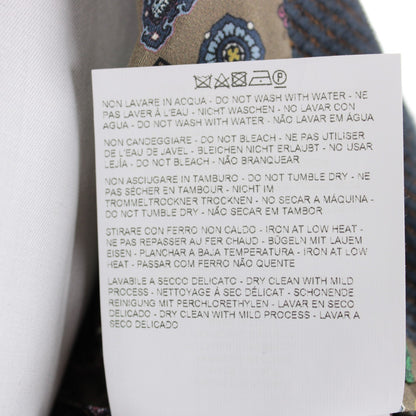 NON LAVARE IN ACQUA - DO NOT WASH WITH WATER - NE
PAS LAVER À L'EAU - NICHT WASCHEN - NO LAVAR CON
AGUA - DO NOT WASH WITH WATER - NÃO LAVAR EM ÁGUA
NON CANDEGGIARE - DO NOT BLEACH - NE PAS UTILISER
DE L'EAU DE JAVEL - BLEICHEN NICHT ERLAUBT - NO USAR
LEJÍA - DO NOT BLEACH - NÃO BRANQUEAR
NON ASCIUGARE IN TAMBURO - DO NOT TUMBLE DRY - NE
PAS SÉCHER EN TAMBOUR - NICHT IM
TROMMELTROCKNER TROCKNEN - NO SECAR A MÁQUINA -
DO NOT TUMBLE DRY - NÃO SECAR EM TAMBOR
STIRARE CON FERRO NON CALDO - IRON AT LOW HEAT -
NE PAS REPASSER AU FER CHAUD - BÜGELN MIT LAUEM
EISEN - PLANCHAR A BAJA TEMPERATURA - IRON AT LOW
HEAT - PASSAR COM FERRO NÃO QUENTE
LAVABILE A SECCO DELICATO - DRY CLEAN WITH MILD
PROCESS - NETTOYAGE À SEC DÉLICAT - SCHONENDE
REINIGUNG MIT PERCHLORETHYLEN - LAVAR EN SECO
DELICADO - DRY CLEAN WITH MILD PROCESS - LAVAR A
SECO DELICADO